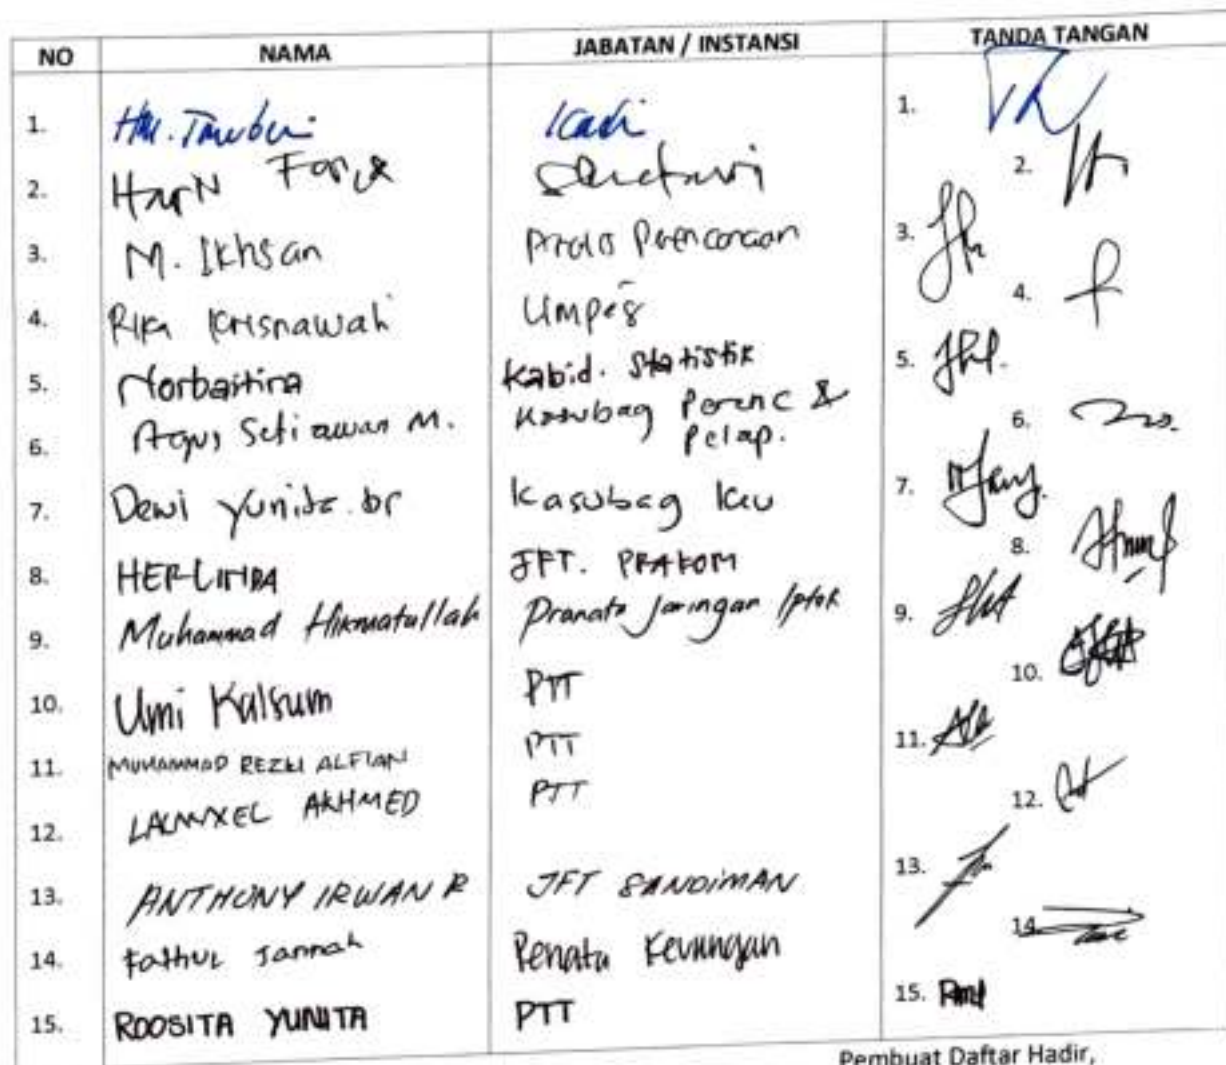 NO NAMA JABATAN / INSTANSI TANDA TANGAN
1. HM. Kadi 1.
2. 2.
3. M. Ikhsan 3.
4. Rika Krisnawati Umpeg 4.
5. Norbaitina Kabid. Statistik 5.
6. Agus Setiawan M. Kasubag Perenc & 6.
Pelap.
7. Dewi Yunita. br Kasubag Keu 7.
8. HERLINDA JFT. PRAKOM 8.
9. Muhammad Hikmatullah Pranata Jaringan Iptek 9.
10. Umi Kalsum PTT 10.
11. MUHAMMAD REZKI ALFIAN PTT 11.
12. AKHMED PTT 12.
13. ANTHONY IRWAN R JFT SANDIMAN 13.
14. Fathul Jannah Penata Keuangan 14.
15. ROOSITA YUNITA PTT 15.
Pembuat Daftar Hadir,